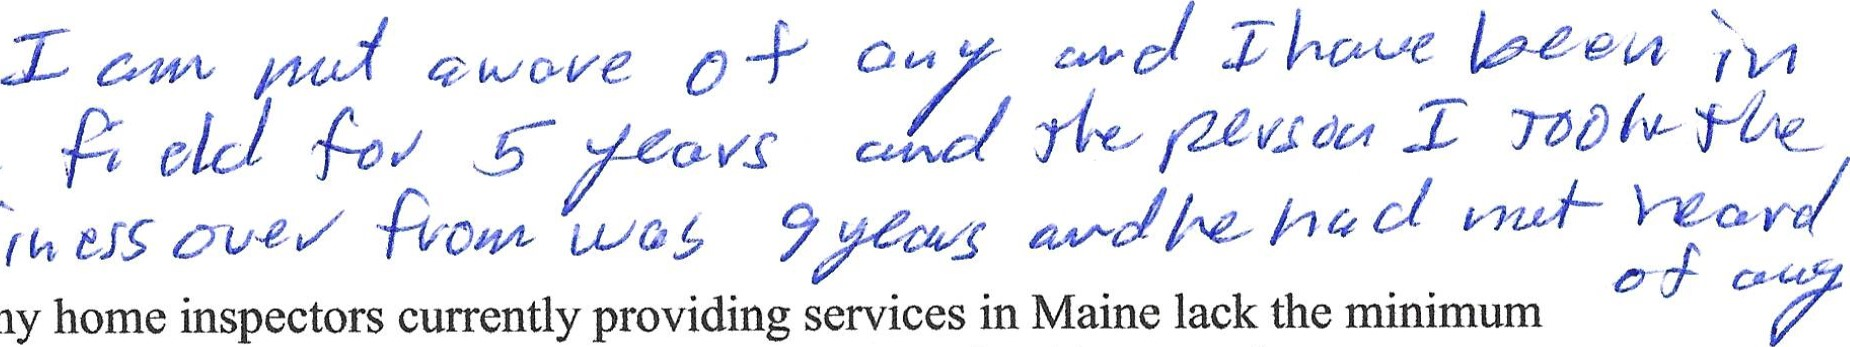 I am not aware of any and I have been in
field for 5 years and the person I took the
iness over from was 9 years and he had not heard
of any
ny home inspectors currently providing services in Maine lack the minimum